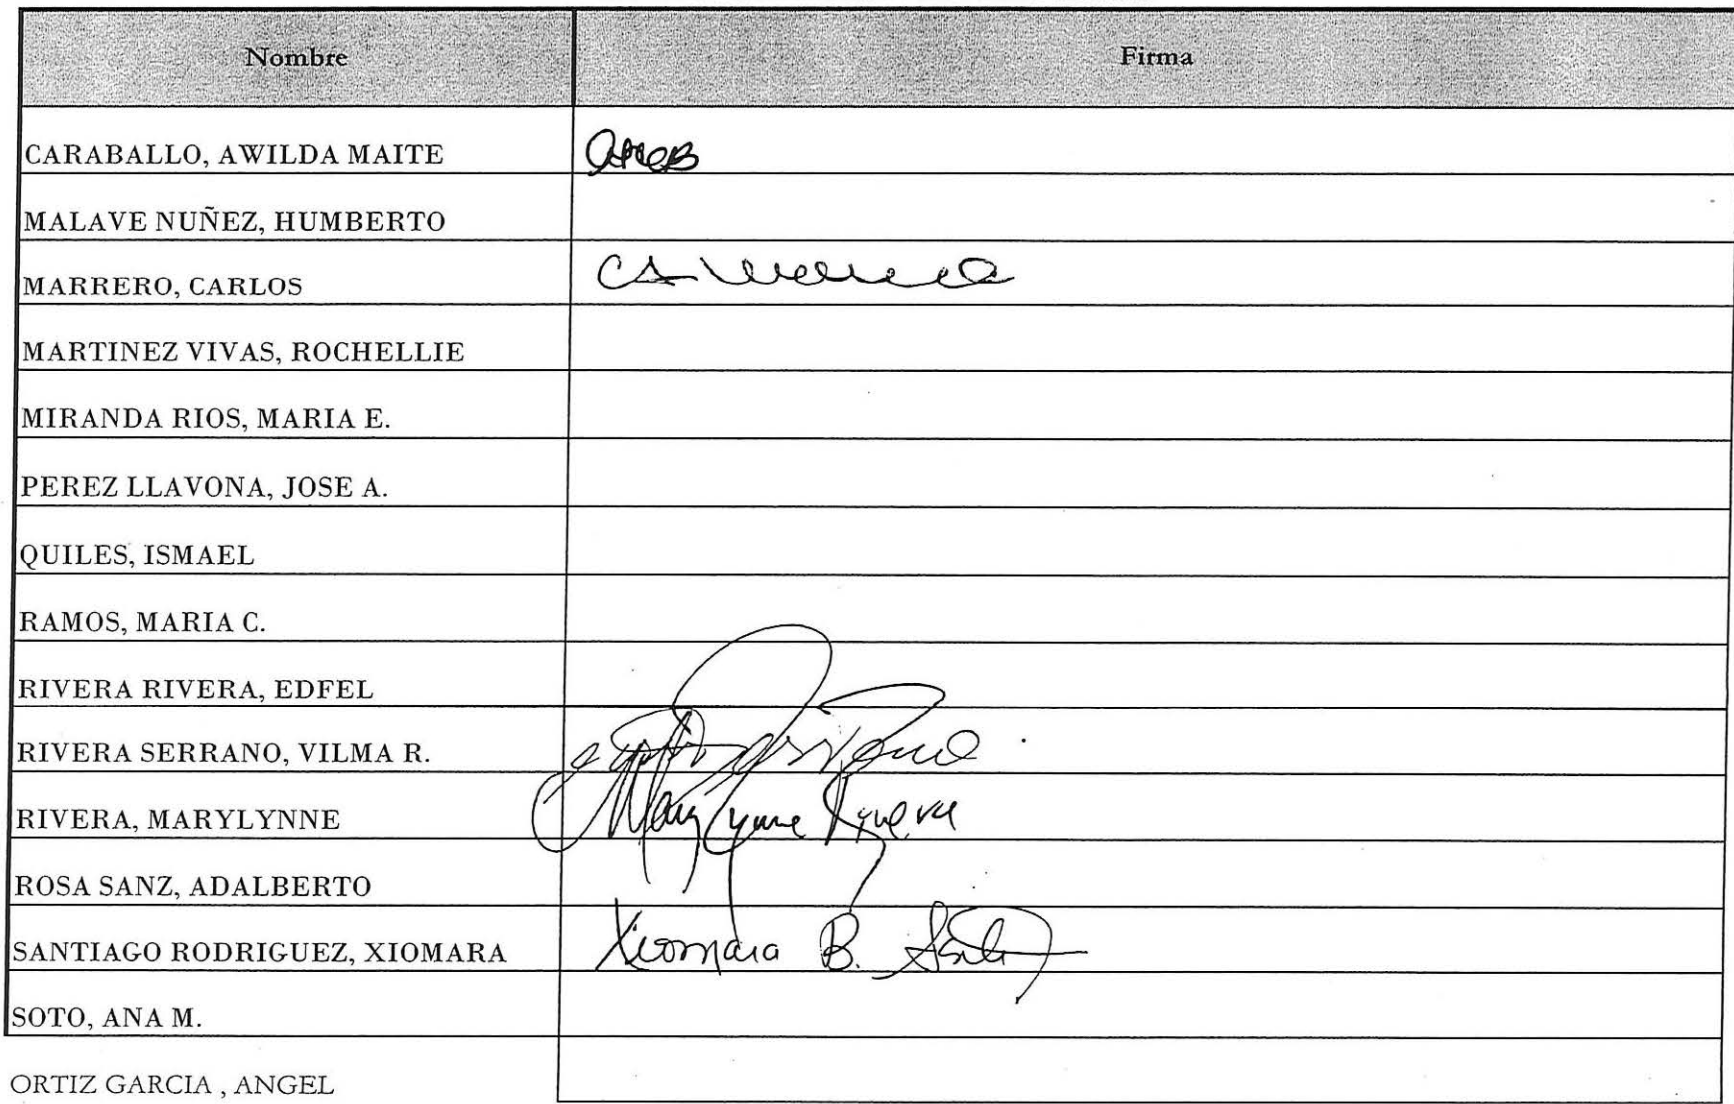 Nombre Firma
CARABALLO, AWILDA MAITE
MALAVE NUÑEZ, HUMBERTO
MARRERO, CARLOS
MARTINEZ VIVAS, ROCHELLIE
MIRANDA RIOS, MARIA E.
PEREZ LLAVONA, JOSE A.
QUILES, ISMAEL
RAMOS, MARIA C.
RIVERA RIVERA, EDFEL
RIVERA SERRANO, VILMA R.
RIVERA, MARYLYNNE Mary Lynne Rivera
ROSA SANZ, ADALBERTO
SANTIAGO RODRIGUEZ, XIOMARA Xiomara B.
SOTO, ANA M.
ORTIZ GARCIA , ANGEL